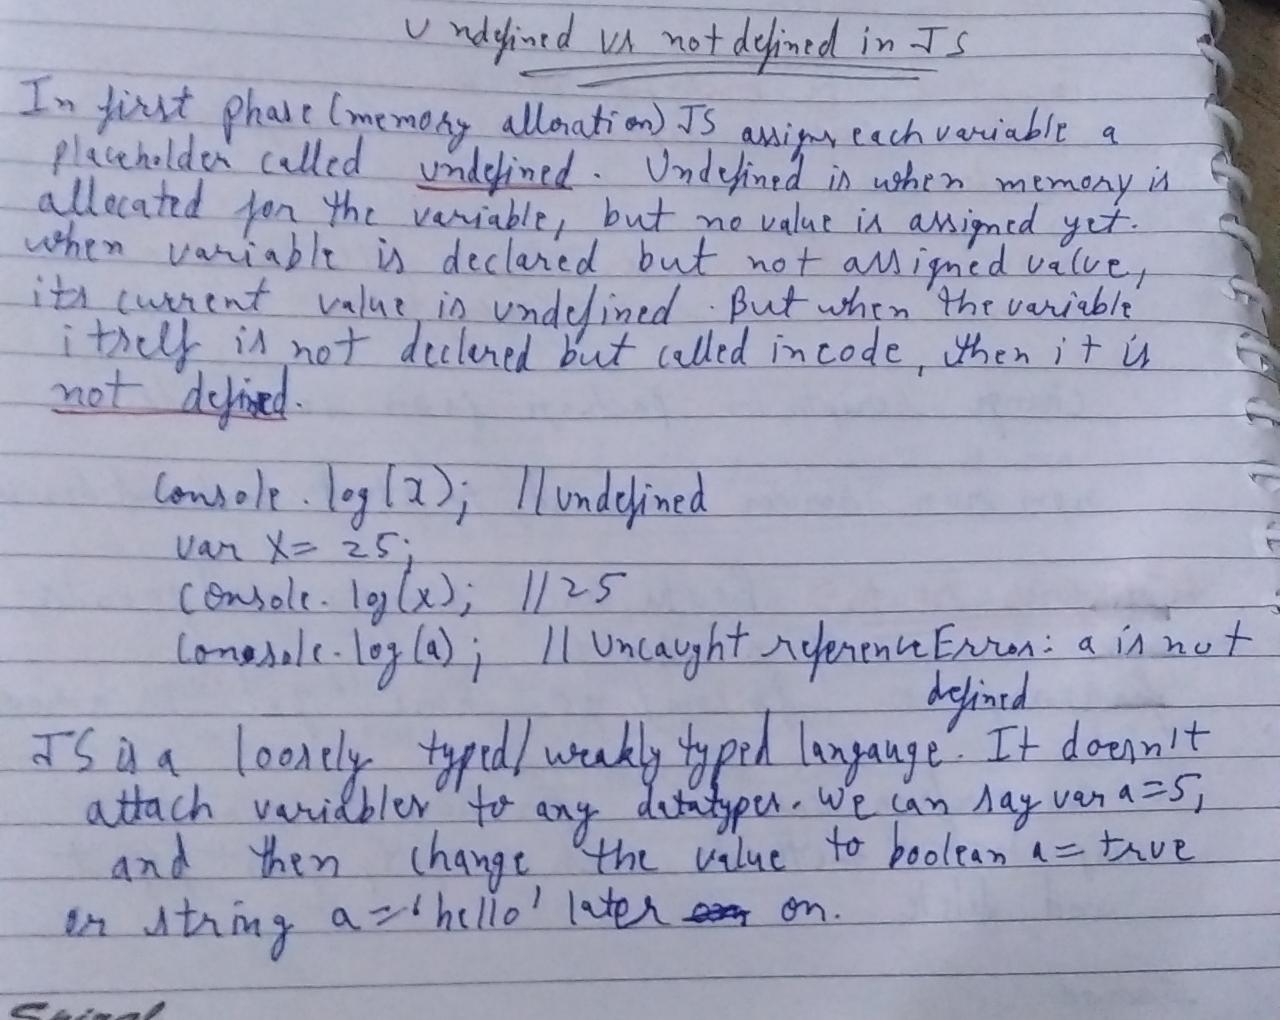 Undefined vs not defined in JS
In first phase (memory allocation) JS assigns each variable a
placeholder called undefined. Undefined is when memory is
allocated for the variable, but no value is assigned yet.
when variable is declared but not assigned value,
its current value is undefined. But when the variable
itself is not declared but called in code, then it is
not defined.
console.log(x); //undefined
var x = 25;
console.log(x); //25
Conosole.log(a); // Uncaught referenceError: a is not
defined
JS is a loosely typed/weakly typed langauge. It doesn't
attach variables to any datatypes. We can say var a=5,
and then change the value to boolean a = true
or string a = 'hello' later on.
Spiral